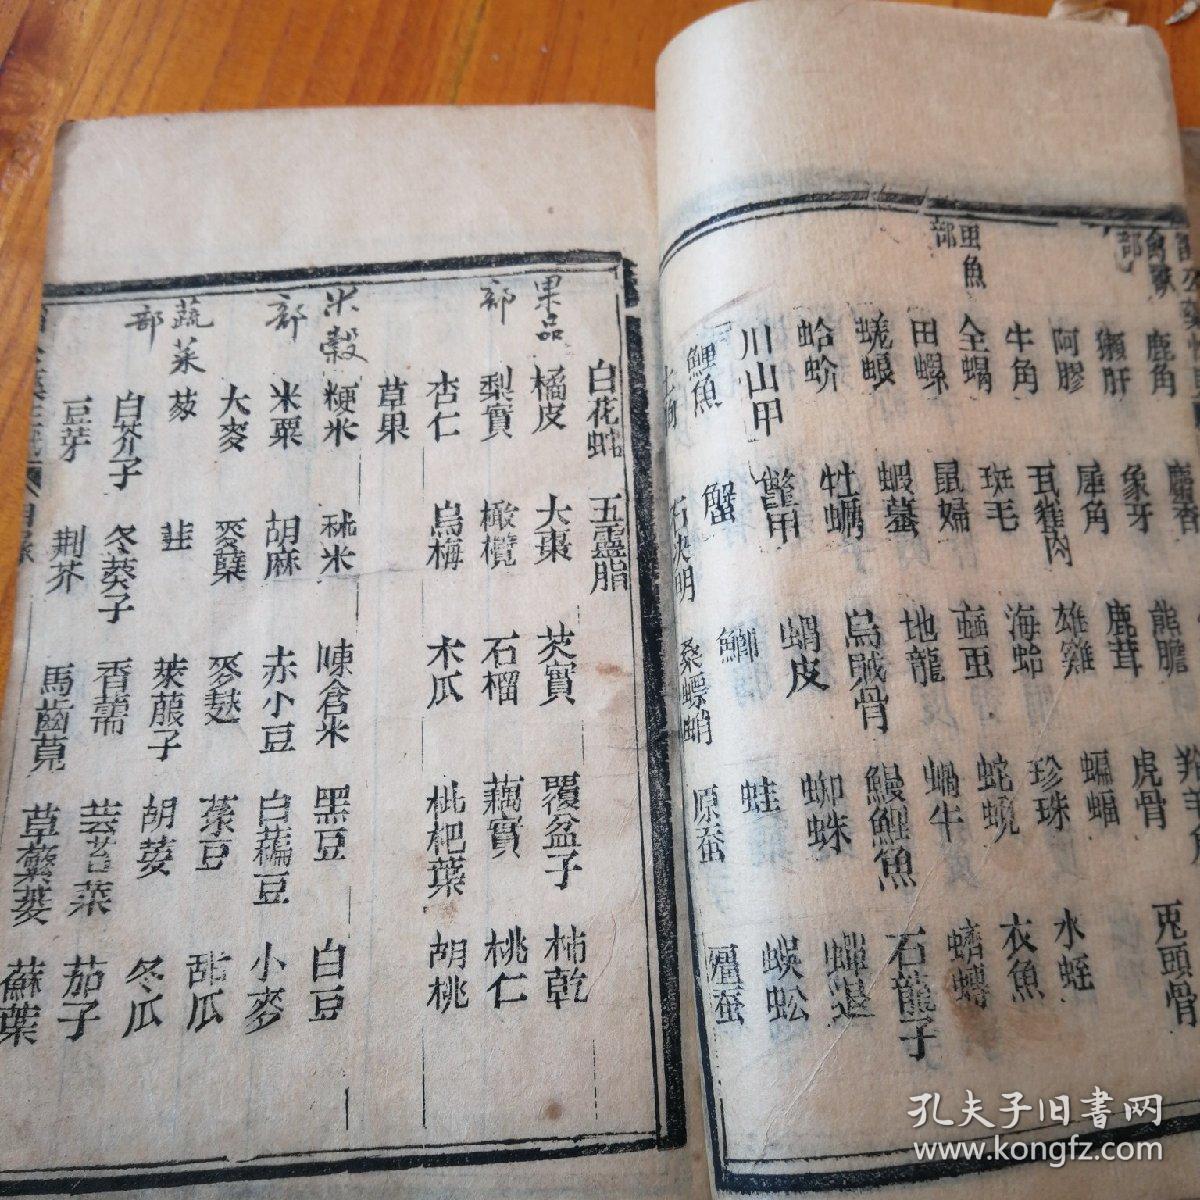 禽獸部
鹿角 麝香 熊膽 羚羊角 兎頭骨
獺肝 象牙 鹿茸 虎骨
阿膠 犀角 雄雞 蝙蝠 水蛭
牛角 瓦雀肉 海蛤 珍珠 衣魚
虫魚部
全蝎 斑毛 蛇蜕 蠐螬
田螺 鼠婦 地龍 蝸牛 石龍子
蝦蟇 烏賊骨 鰻鯉魚
蛤蚧 牡蠣 蝟皮 蜘蛛 蟬退
川山甲 鱉甲 蛙 蜈蚣
鯉魚 蟹 原蚕 殭蚕
石決明 桑螵蛸
白花蛇 五靈脂
果品部
橘皮 大棗 芡實 覆盆子 柿乾
梨實 橄欖 石榴 藕實 桃仁
杏仁 烏梅 木瓜 枇杷葉 胡桃
草果
米穀部
粳米 秫米 陳倉米 黑豆 白豆
米粟 胡麻 赤小豆 白藊豆 小麥
大麥 麥櫱 麥麩 菉豆 甜瓜
蔬菜部
葱 韮 萊菔子 胡荽 冬瓜
白芥子 冬葵子 香薷 芸苔菜 茄子
豆芽 荆芥 馬齒莧 蘇葉
孔夫子旧书网
www.kongfz.com